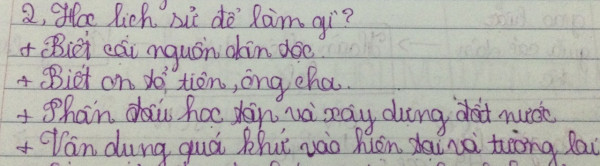 2, Học lịch sử để làm gì?
+ Biết cội nguồn dân tộc.
+ Biết ơn tổ tiên, ông cha.
+ Phấn đấu học tập và xây dựng đất nước
+ Vận dụng quá khứ vào hiện tại và tương lai